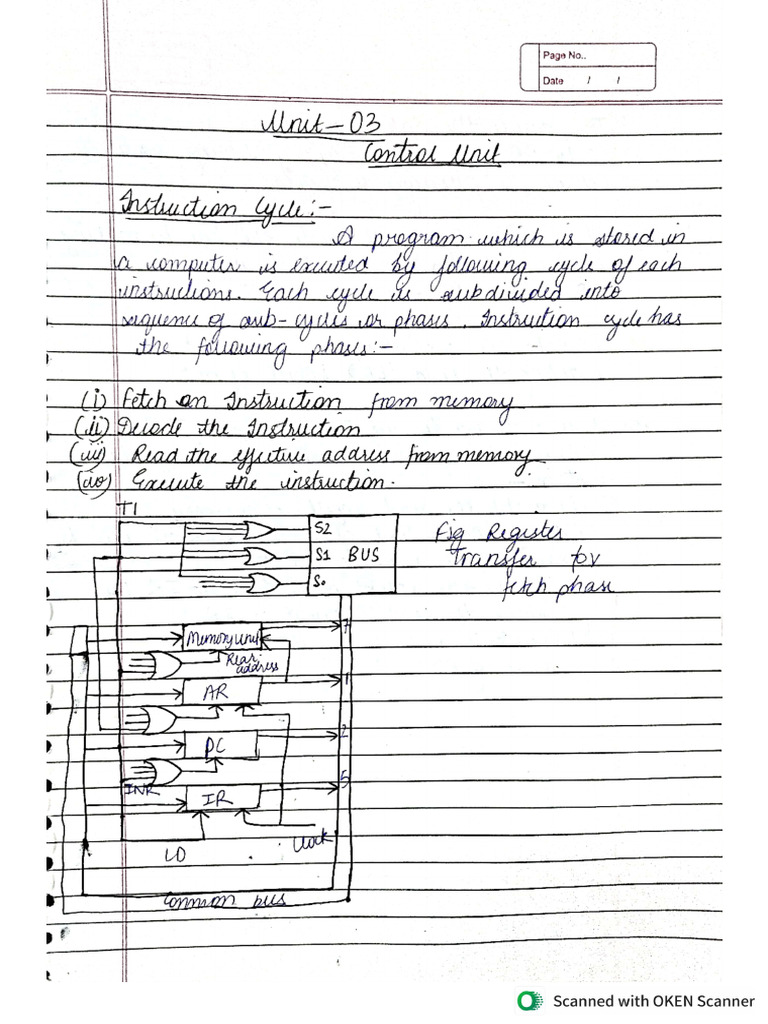 Page No..
Date / /
Unit-03
Control Unit
Instruction Cycle:-
A program which is stored in
a computer is executed by following cycle of each
instructions. Each cycle is subdivided into
sequence of sub-cycles or phases. Instruction cycle has
the following phases:-
(i) Fetch an Instruction from memory
(ii) Decode the Instruction
(iii) Read the effective address from memory
(iv) Execute the instruction.
T1
S2
S1 BUS
S0
Fig Register
transfer for
fetch phase
Memory unit
7
Read
address
AR
1
PC
2
INR
IR
5
LD
Clock
Common bus
Scanned with OKEN Scanner